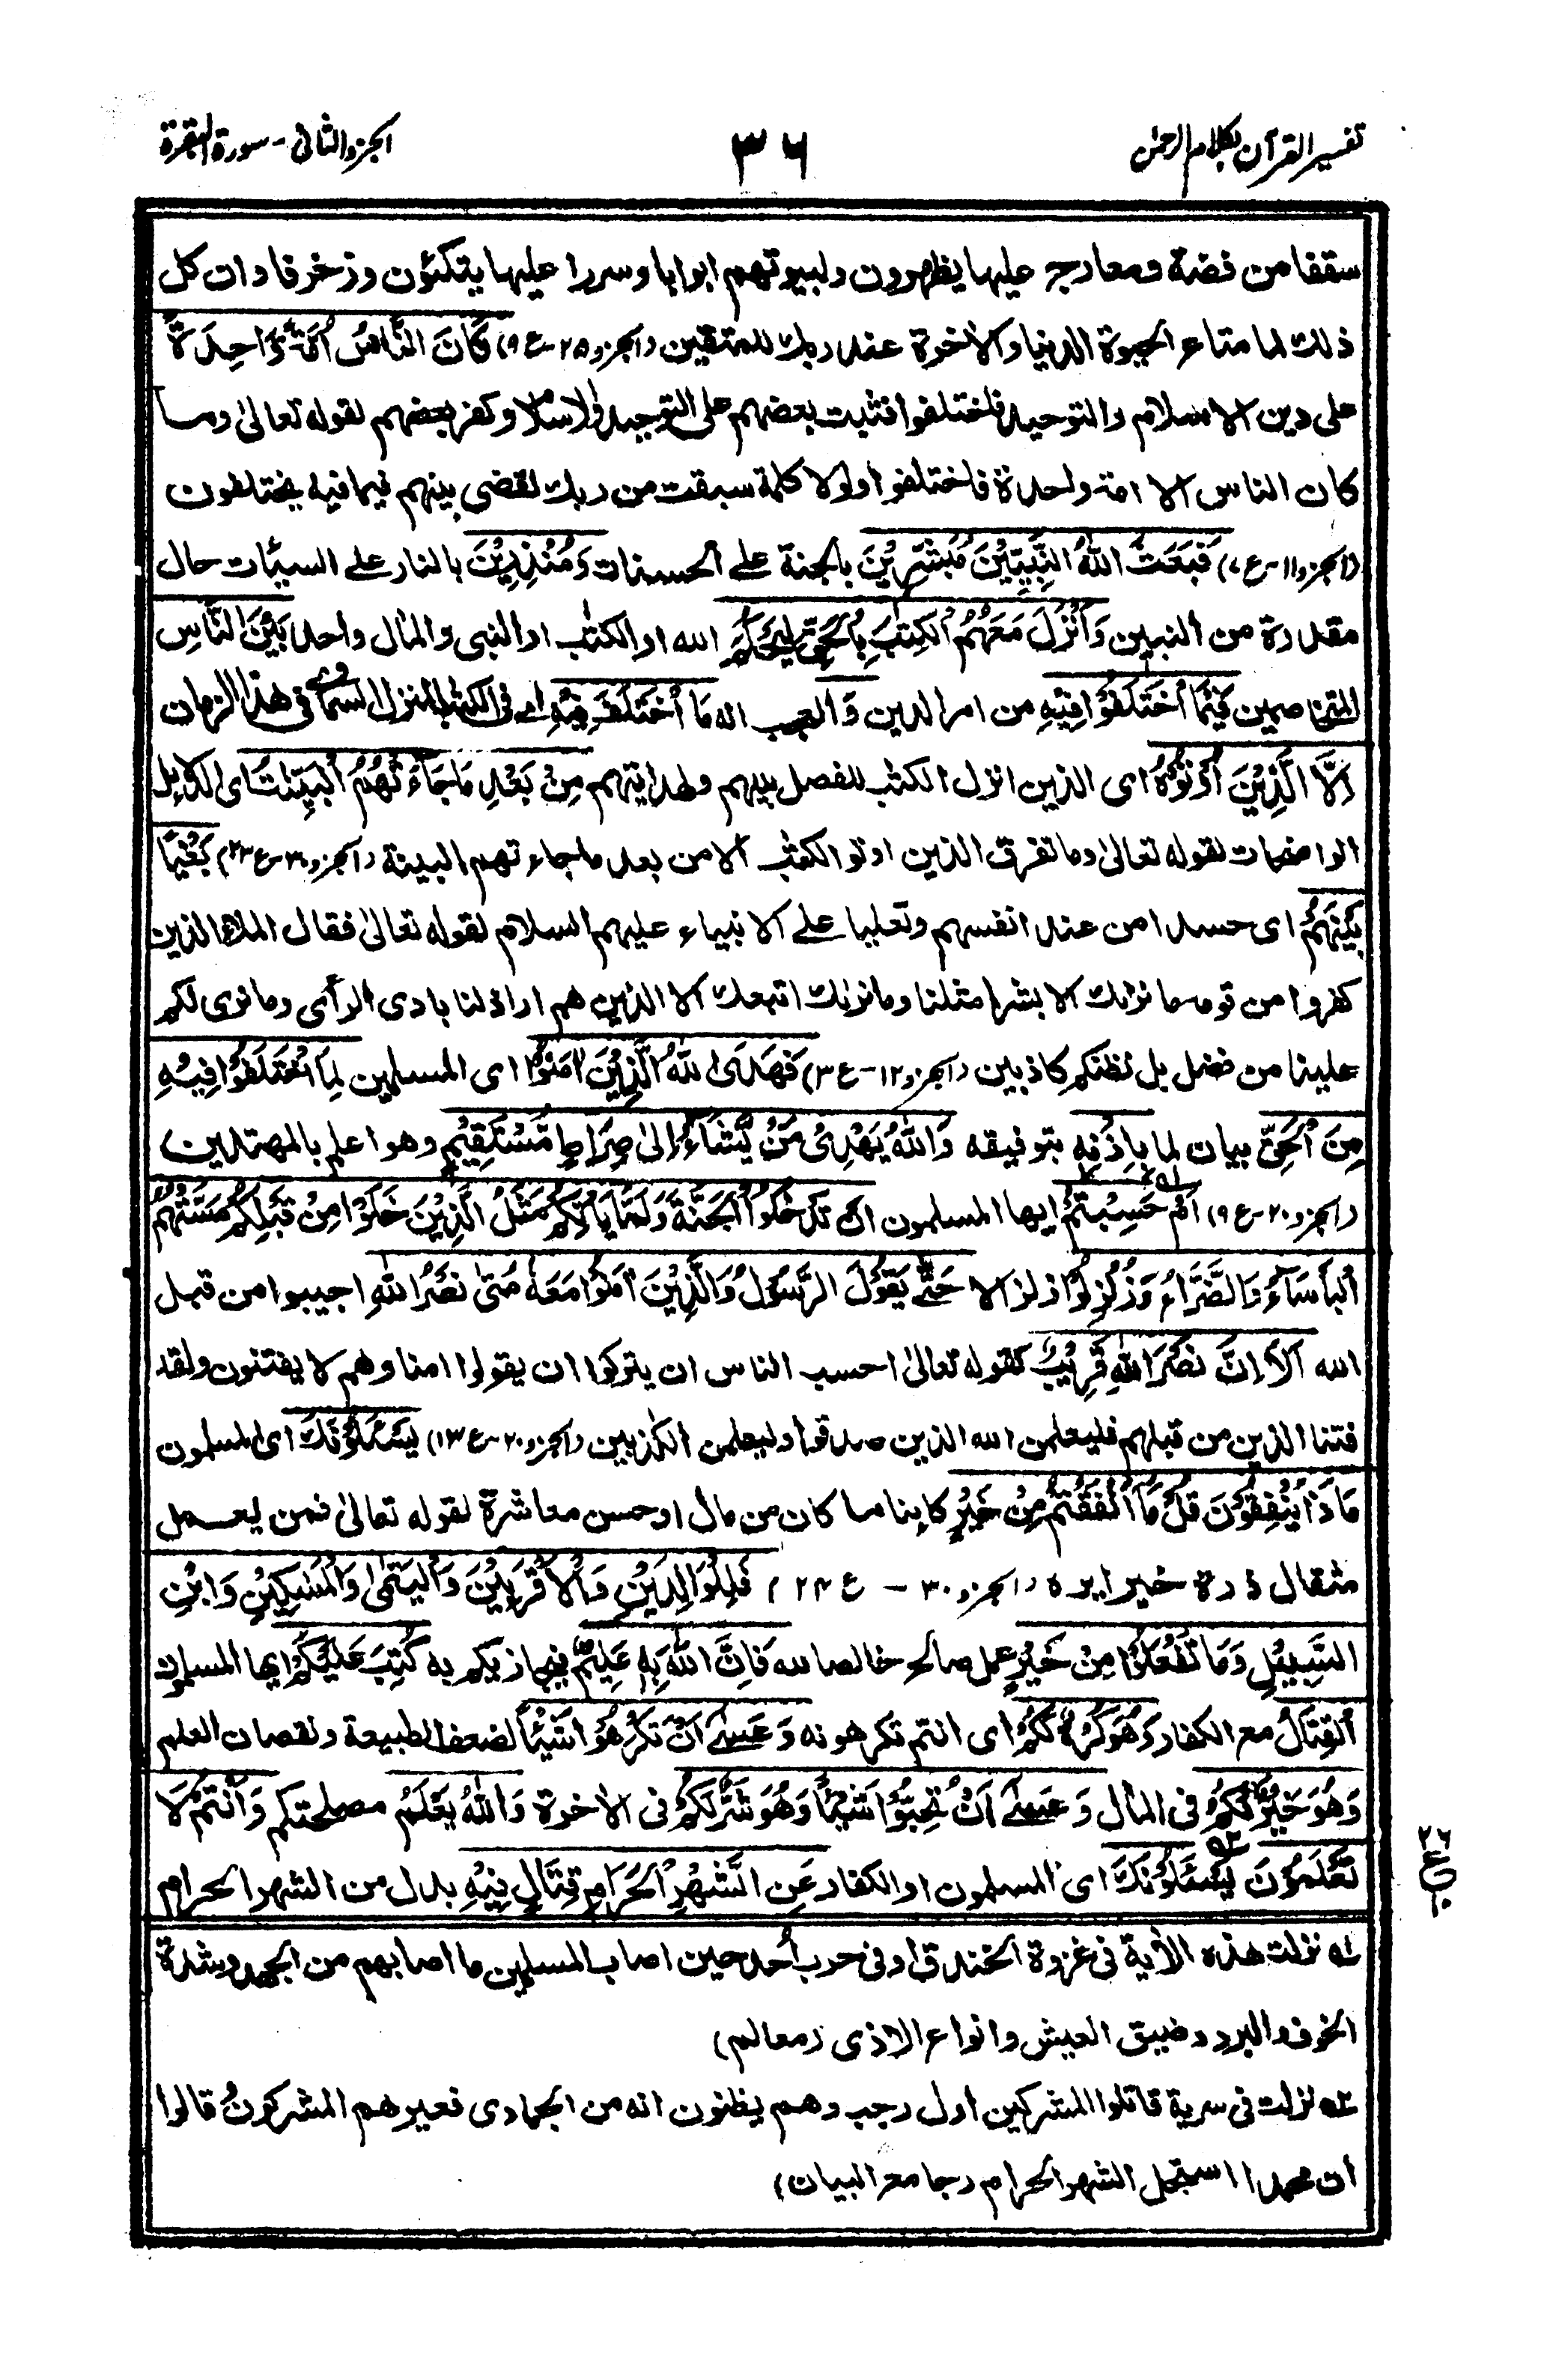 تفسير القرآن بكلام الرحمٰن
٣٦
الجزو الثانى - سورة البقرة
سقفا من فضة ومعارج عليها يظهرون ولبيوتهم ابوابا وسررا عليها يتكئون وزخرفا وان كل
ذلك لما متاع الحيوة الدنيا والاٰخرة عند ربك للمتقين (الجزو ٢٥-ع ٩) كَانَ النَّاسُ اُمَّةً وَّاحِدَةً
على دين الاسلام والتوحيد فاختلفوا فثبت بعضهم على التوحيد والاسلام وكفر بعضهم لقوله تعالىٰ وما
كان الناس الا امة واحدة فاختلفوا ولولا كلمة سبقت من ربك لقضى بينهم فيما فيه يختلفون
(الجزو ١١-ع ٧) فَبَعَثَ اللّٰهُ النَّبِيّٖنَ مُبَشِّرِيْنَ بالجنة علے الحسنات وَمُنْذِرِيْنَ بالنار علے السيئات حال
مقدرة من النبين وَاَنْزَلَ مَعَهُمُ الْكِتٰبَ بِالْحَقِّ لِيَحْكُمَ الله او الكتٰب او النبى والمال واحد بَيْنَ النَّاسِ
المتخاصمين فِيْمَا اخْتَلَفُوْا فِيْهِ من امر الدين وَ العجب انه مَا اخْتَلَفَ فِيْهِ اے فى الكتٰب المنزل السماوے فى هذا الزمان
اِلَّا الَّذِيْنَ اُوْتُوْهُ اى الذين انزل الكتٰب للفصل بينهم ولهدايتهم مِنْ بَعْدِ مَا جَآءَتْهُمُ الْبَيِّنٰتُ اى الدلائل
الواضحات لقوله تعالىٰ وما تفرق الذين اوتو الكتٰب الا من بعد ما جاءتهم البينة (الجزو ٣٠-ع ٢٣) بَغْيًا
بَيْنَهُمْ اى حسدا من عند انفسهم وتعليا علے الانبياء عليهم السلام لقوله تعالىٰ فقال الملأ الذين
كفروا من قومه ما نرٰىك الا بشرا مثلنا وما نرٰىك اتبعك الا الذين هم اراذلنا بادى الرأى وما نرى لكم
علينا من فضل بل نظنكم كاذبين (الجزو ١٢-ع ٣) فَهَدَى اللّٰهُ الَّذِيْنَ اٰمَنُوْا اى المسلمين لِمَا اخْتَلَفُوْا فِيْهِ
مِنَ الْحَقِّ بيان لما بِاِذْنِهٖ بتوفيقه وَاللّٰهُ يَهْدِىْ مَنْ يَّشَآءُ اِلٰى صِرَاطٍ مُّسْتَقِيْمٍ وهو اعلم بالمهتدين
(الجزو ٢٠-ع ٩) اَمْ حَسِبْتُمْ ايها المسلمون اَنْ تَدْخُلُوا الْجَنَّةَ وَلَمَّا يَاْتِكُمْ مَثَلُ الَّذِيْنَ خَلَوْا مِنْ قَبْلِكُمْ مَسَّتْهُمُ
الْبَأْسَآءُ وَالضَّرَّآءُ وَزُلْزِلُوْا زلزالا حَتّٰى يَقُوْلَ الرَّسُوْلُ وَالَّذِيْنَ اٰمَنُوْا مَعَهٗ مَتٰى نَصْرُ اللّٰهِ اجيبوا من قبل
الله اَلَآ اِنَّ نَصْرَ اللّٰهِ قَرِيْبٌ كقوله تعالىٰ احسب الناس ان يتركوا ان يقولوا امنا وهم لا يفتنون ولقد
فتنا الذين من قبلهم فليعلمن الله الذين صدقوا وليعلمن الكٰذبين (الجزو ٢٠-ع ١٣) يَسْـَٔلُوْنَكَ اى المسلمون
مَاذَا يُنْفِقُوْنَ قُلْ مَآ اَنْفَقْتُمْ مِنْ خَيْرٍ كاينا ما كان من مال او حسن معاشرة لقوله تعالىٰ فمن يعمل
مثقال ذرة خيرا يره (الجزو ٣٠ - ع ٢٤) فَلِلْوَالِدَيْنِ وَالْاَقْرَبِيْنَ وَالْيَتٰمٰى وَالْمَسٰكِيْنِ وَابْنِ
السَّبِيْلِ وَمَا تَفْعَلُوْا مِنْ خَيْرٍ عمل صالح خالصا لله فَاِنَّ اللّٰهَ بِهٖ عَلِيْمٌ فيجازيكم به كُتِبَ عَلَيْكُمُ ايها المسلمون
الْقِتَالُ مع الكفار وَهُوَ كُرْهٌ لَّكُمْ اى انتم تكرهونه وَعَسٰٓى اَنْ تَكْرَهُوْا شَيْئًا لضعف الطبيعة ونقصان العلم
وَهُوَ خَيْرٌ لَّكُمْ فى المآل وَعَسٰٓى اَنْ تُحِبُّوْا شَيْئًا وَهُوَ شَرٌّ لَّكُمْ فى الاٰخرة وَاللّٰهُ يَعْلَمُ مصلحتكم وَاَنْتُمْ لَا
تَعْلَمُوْنَ يَسْـَٔلُوْنَكَ اى المسلمون او الكفار عَنِ الشَّهْرِ الْحَرَامِ قِتَالٍ فِيْهِ بدل من الشهر الحرام
٢٦
ع
١٠
لـه نزلت هذه الاٰية فى غزوة الخندق او فى حرب اُحد حين اصاب المسلمين ما اصابهم من الجهد وشدة
الخوف والبرد وضيق العيش وانواع الاذى (معالم)
٢ـه نزلت فى سرية قاتلوا المشركين اول رجب وهم يظنون انه من الجمادى فعيرهم المشركون قالوا
ان محمدا استحل الشهر الحرام (جامع البيان)